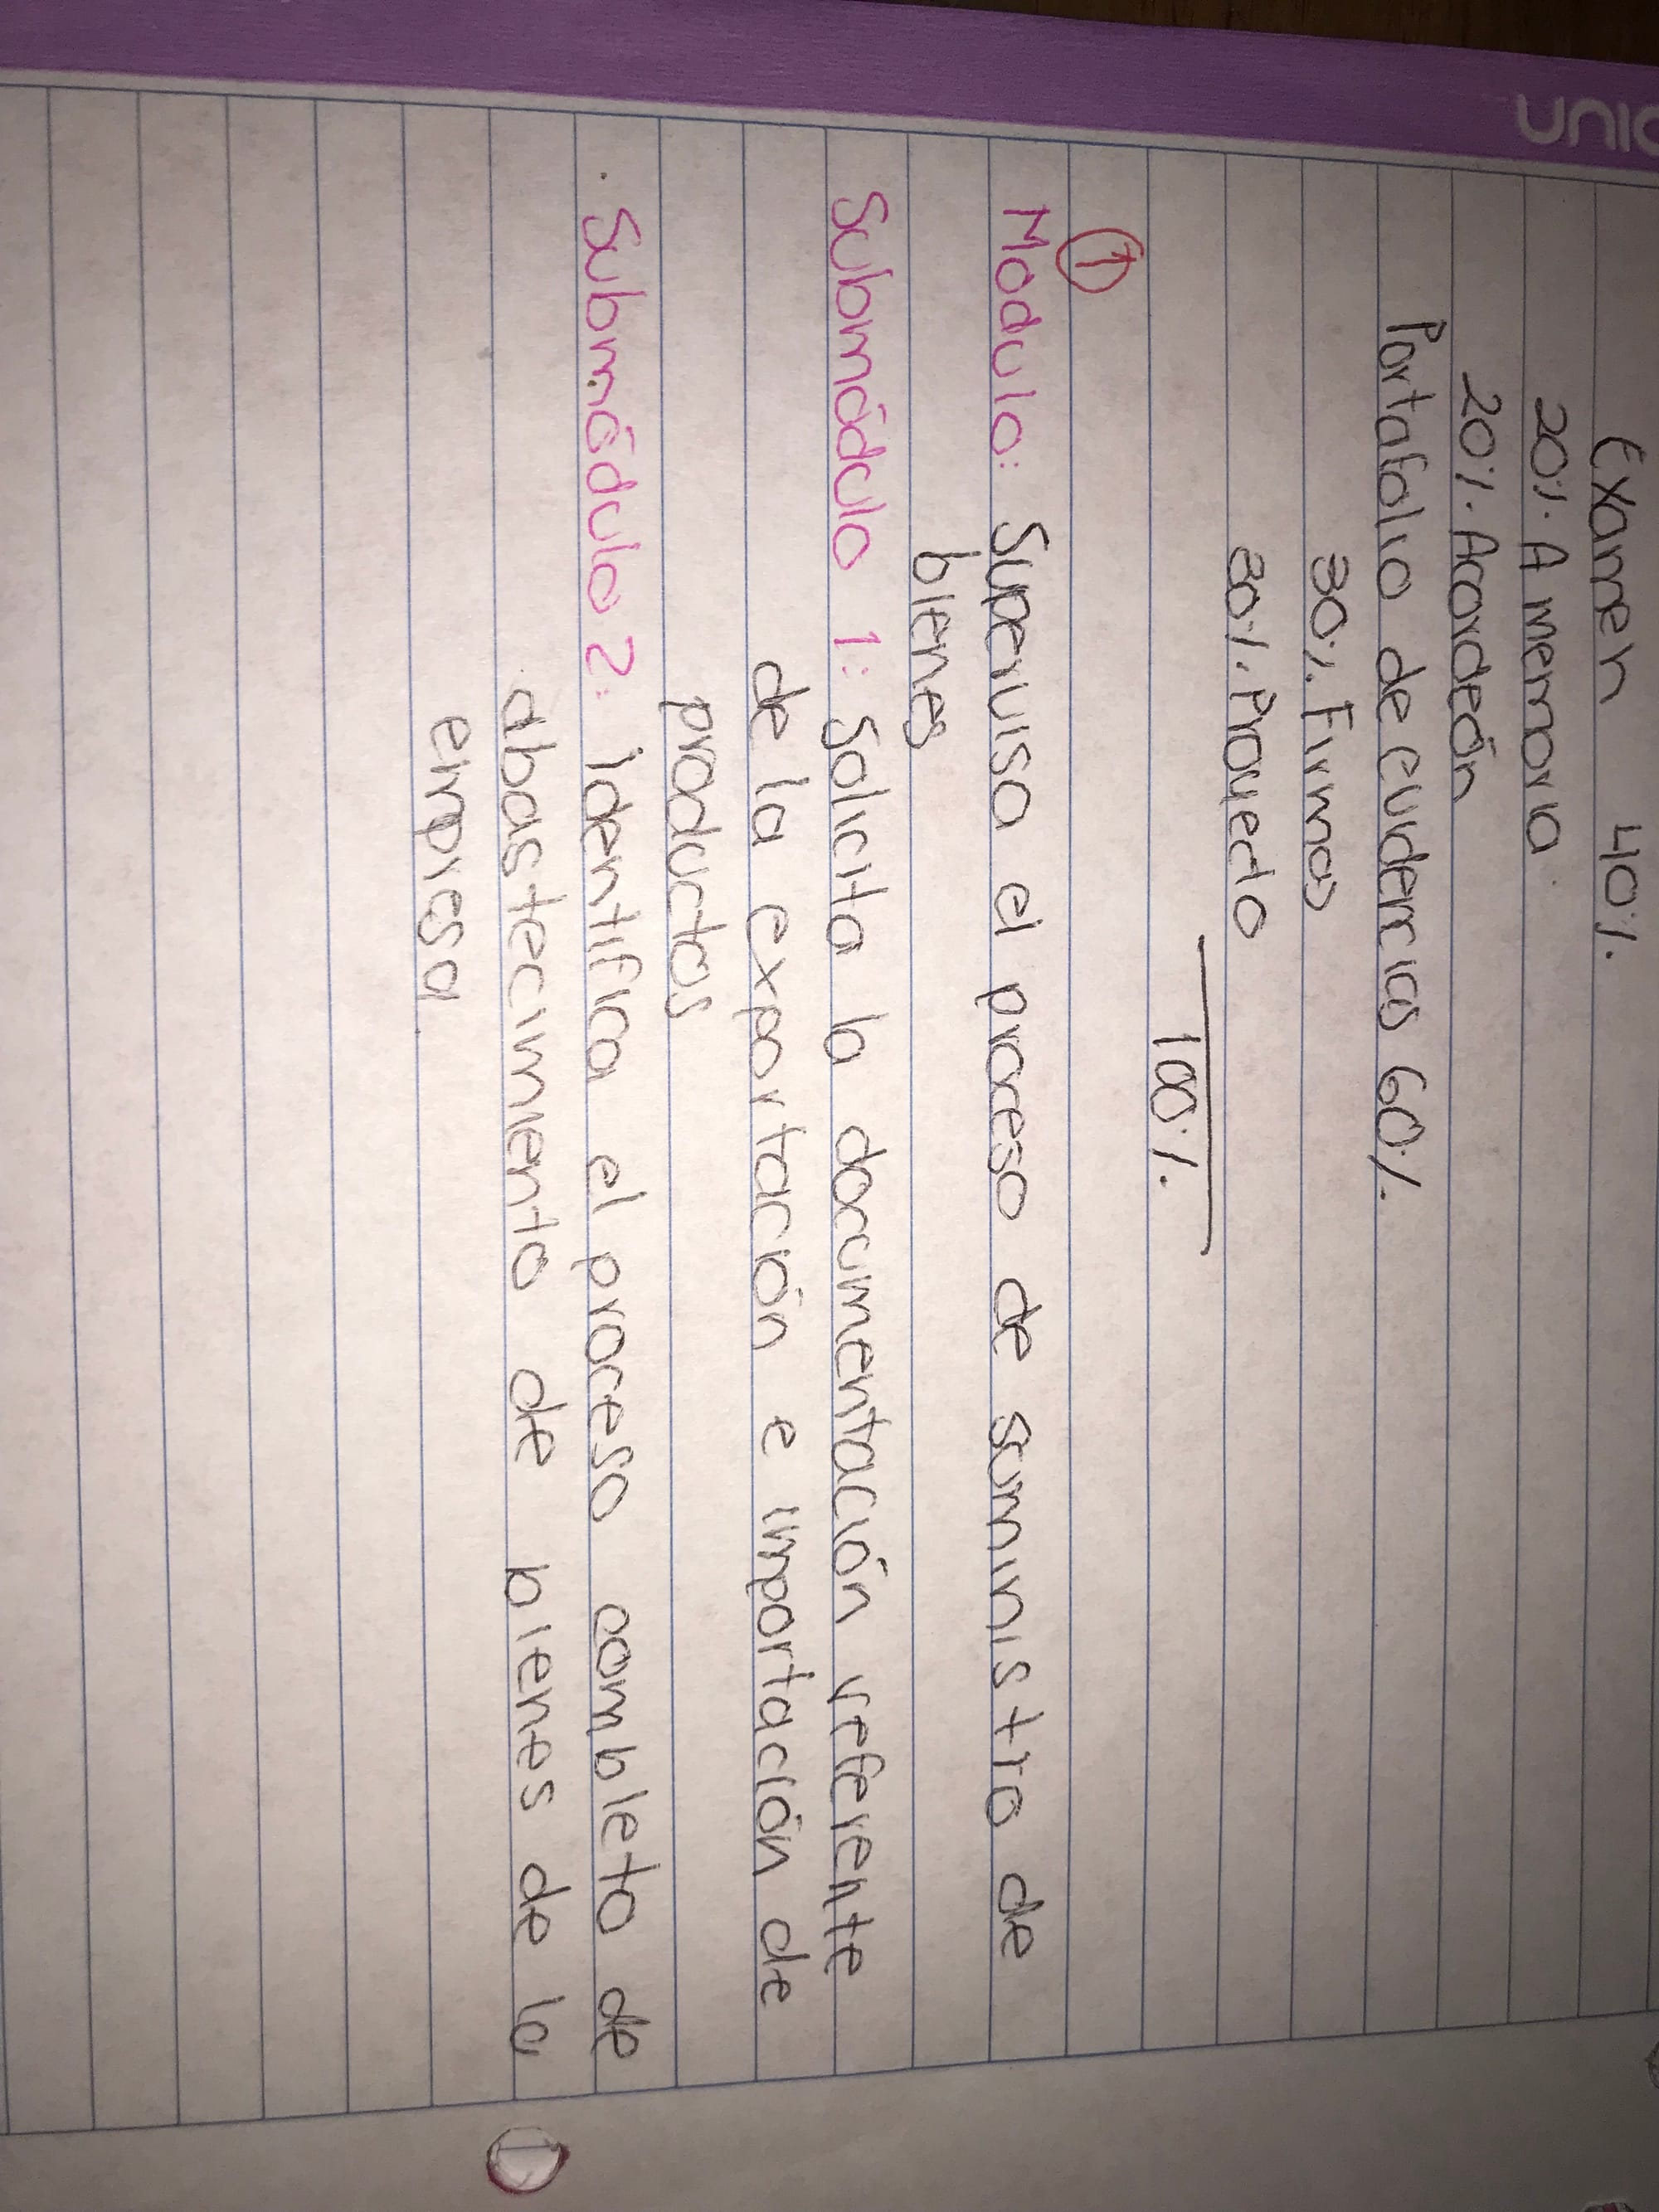 Examen 40%.
20%. A memoria
20%. Acordeón
Portafolio de evidencias 60%.
30%. Firmas
30%. Proyecto
100%.
1
Modulo: Supervisa el proceso de suministro de
bienes
Submódulo 1: Solicita la documentación referente
de la exportación e importación de
productos
Submódulo 2: identifica el proceso completo de
abastecimiento de bienes de la
empresa
1